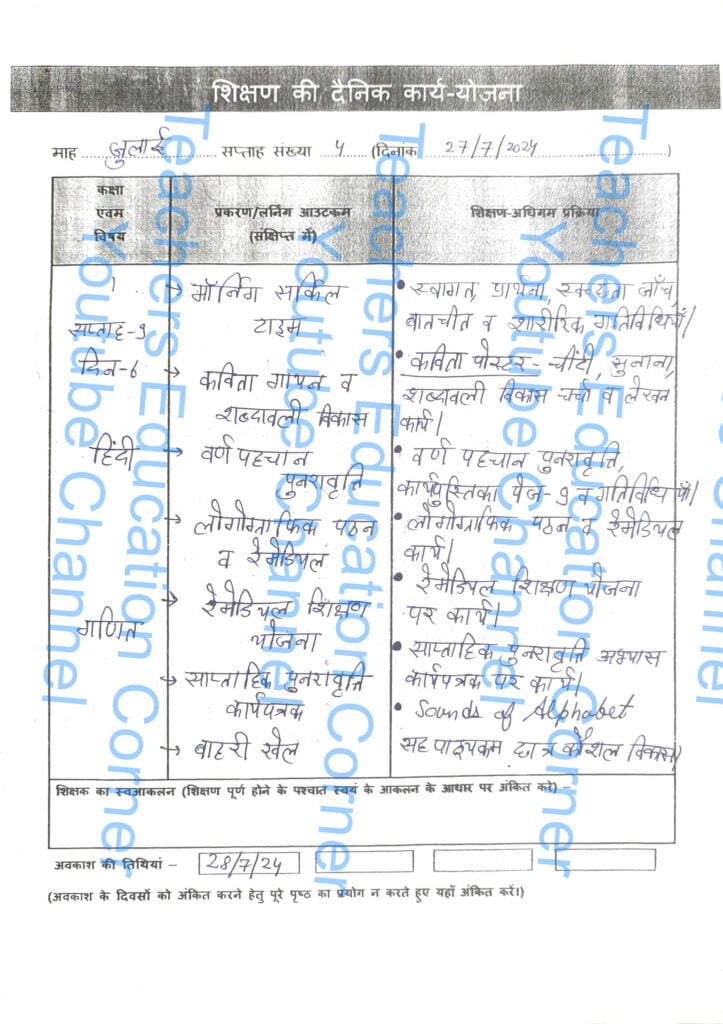 शिक्षण की दैनिक कार्य-योजना
माह ....जुलाई.... सप्ताह संख्या ..4.. (दिनांक ....27/7/2024....)
कक्षा एवम विषय
प्रकरण/लर्निंग आउटकम
(संक्षिप्त में)
शिक्षण-अधिगम प्रक्रिया
1
सप्ताह-9
दिन-6
हिंदी
गणित
→ मॉर्निंग सर्किल
टाइम
→ कविता गायन व
शब्दावली विकास
→ वर्ण पहचान
पुनरावृत्ति
→ लोगोग्राफिक पठन
व रेमेडियल
→ रेमेडियल शिक्षण
योजना
→ साप्ताहिक पुनरावृत्ति
कार्यपत्रक
→ बाहरी खेल
• स्वागत, प्रार्थना, स्वच्छता जाँच,
बातचीत व शारीरिक गतिविधियाँ।
• कविता पोस्टर - चींटी, सुनाना,
शब्दावली विकास चर्चा व लेखन
कार्य।
• वर्ण पहचान पुनरावृत्ति,
कार्यपुस्तिका पेज-9 व गतिविधियाँ।
• लोगोग्राफिक पठन व रेमेडियल
कार्य।
• रेमेडियल शिक्षण योजना
पर कार्य।
• साप्ताहिक पुनरावृत्ति अभ्यास
कार्यपत्रक पर कार्य।
• Sounds of Alphabet
सह पाठ्यक्रम छात्र कौशल विकास।
शिक्षक का स्वआकलन (शिक्षण पूर्ण होने के पश्चात स्वयं के आकलन के आधार पर अंकित करें) –
अवकाश की तिथियां – 28/7/24
(अवकाश के दिवसों को अंकित करने हेतु पूरे पृष्ठ का प्रयोग न करते हुए यहाँ अंकित करें।)
Teachers Education Corner
Youtube Channel
Teachers Education Corner
Youtube Channel
Teachers Education Corner
Youtube Channel